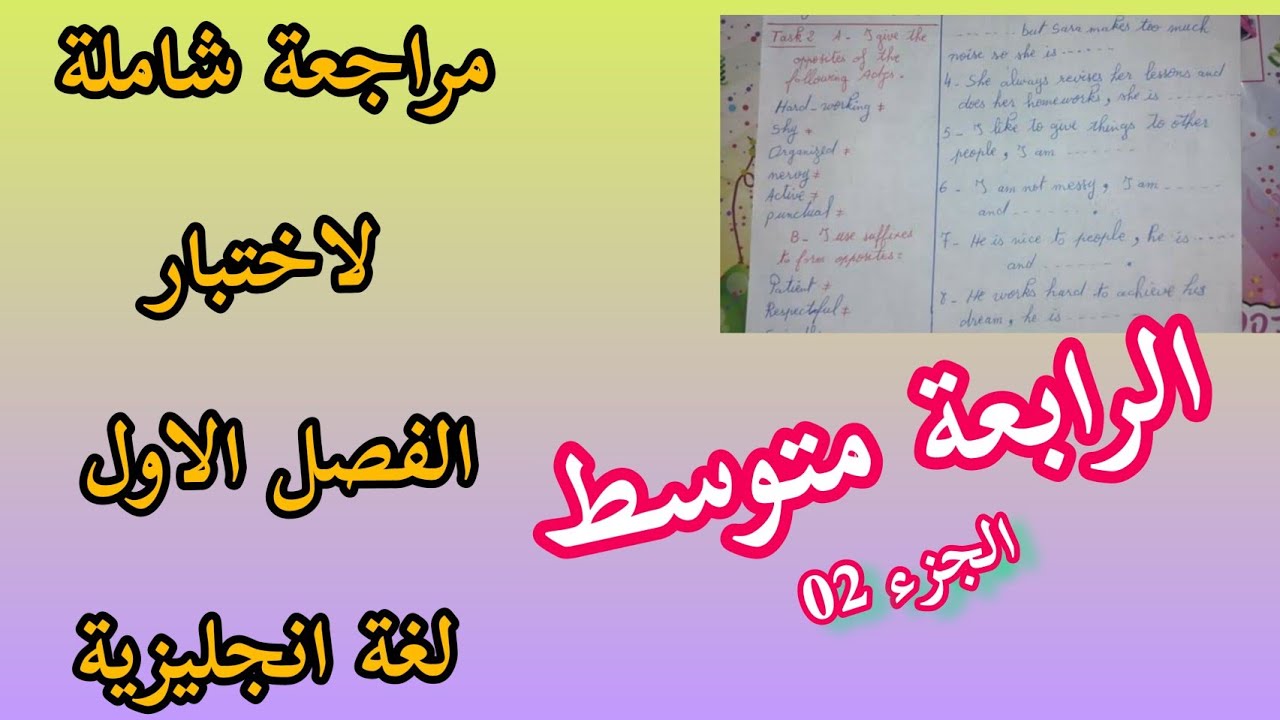 مراجعة شاملة
لاختبار
الفصل الاول
لغة انجليزية
الرابعة متوسط
الجزء 02
Task 2 A- I give the
opposites of the
following Adjs.
Hard-working ≠
Shy ≠
Organized ≠
Active ≠
punctual ≠
B- I use suffixes
to form opposites:
Patient ≠
Respectful ≠
------ but Sara makes too much
noise so she is ------
4- She always revises her lessons and
does her homeworks, she is ---------
5- I like to give things to other
people, I am -------
6- I am not messy, I am ------
and ------- .
7- He is nice to people, he is -----
and ------- .
8- He works hard to achieve his
dream, he is -------